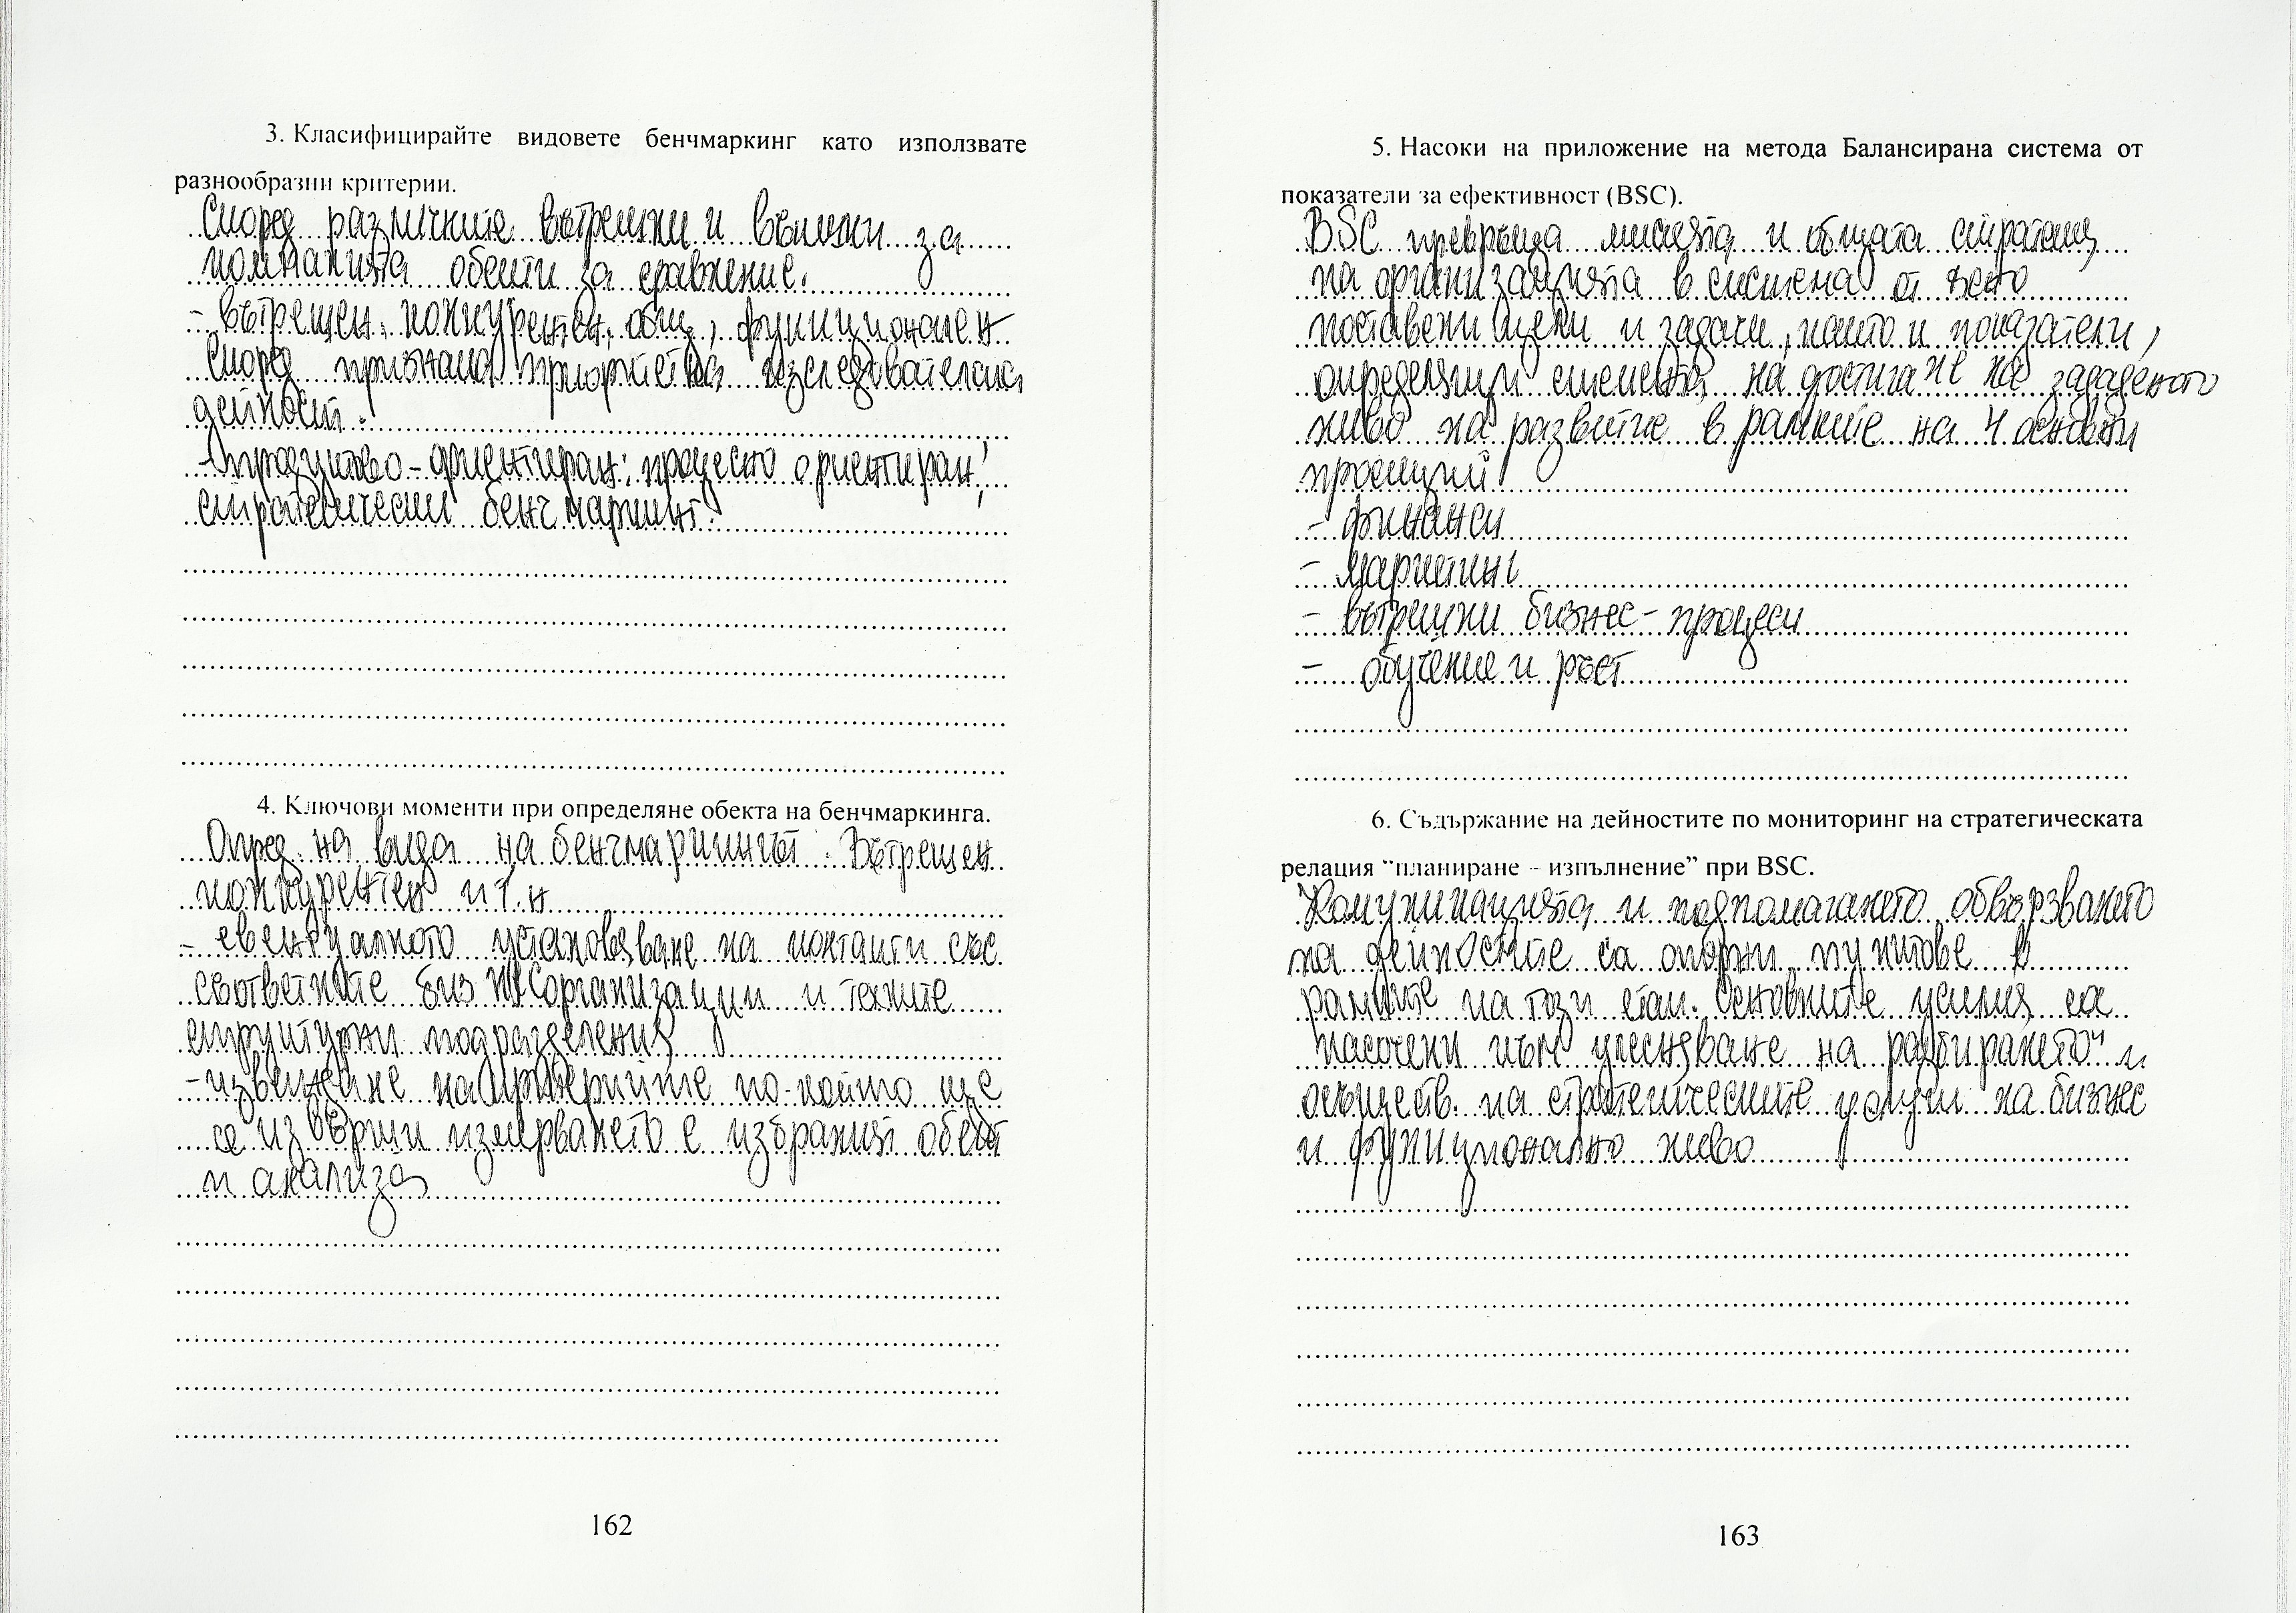 3. Класифицирайте видовете бенчмаркинг като използвате
разнообразни критерии.
Според различните вътрешни и външни за
компанията обекти за сравнение.
- вътрешен, конкурентен, общ, функционален
Според признака приоритетна изследователска
дейност.
- продуктово-ориентиран; процесно ориентиран;
стратегически бенчмаркинг.
4. Ключови моменти при определяне обекта на бенчмаркинга.
Опред. на вида на бенчмаркингът. Вътрешен
конкурентен и т.н
- евентуалното установяване на контакти със
съответните бизнес организации и техните
структурни подразделения
- извеждане на критерийте по-който ще
се извърши измерването с избрания обект
и анализа
162
5. Насоки на приложение на метода Балансирана система от
показатели за ефективност (BSC).
BSC превръща мисията и общата стратегия
на организацията в система от ясно
поставени цели и задачи, както и показатели,
определящи степента на достигане на зададеното
ниво на развитие в рамките на 4 основни
проекции
- финанси
- маркетинг
- вътрешни бизнес-процеси
- обучение и ръст
6. Съдържание на дейностите по мониторинг на стратегическата
релация “планиране - изпълнение” при BSC.
Комуникацията и подпомагането обвързването
на дейностите са опорни пунктове в
рамките на този етап. Основните усилия са
насочени към улесняване на разбирането и
осъществ. на стратегическите услуги на бизнес
и функционално ниво
163